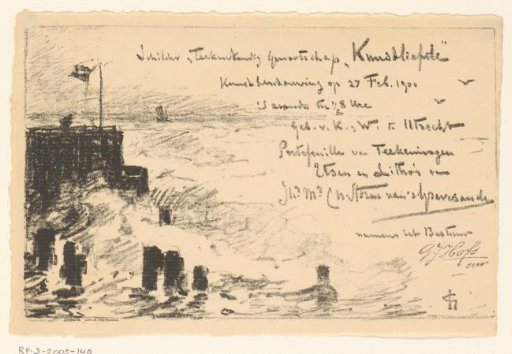 Schilder & Teekenkundig Genootschap „Kunstliefde"
Kunstbeschouwing op 27 Feb. 1900
's avonds te ½8 Ure
Geb. v. K. & W. te Utrecht
Portefeuille van Teekeningen
Etsen en Litho's van
Jhr Mr C N Storm van 's Gravesande
namens het Bestuur
secr
RP-D-2005-140